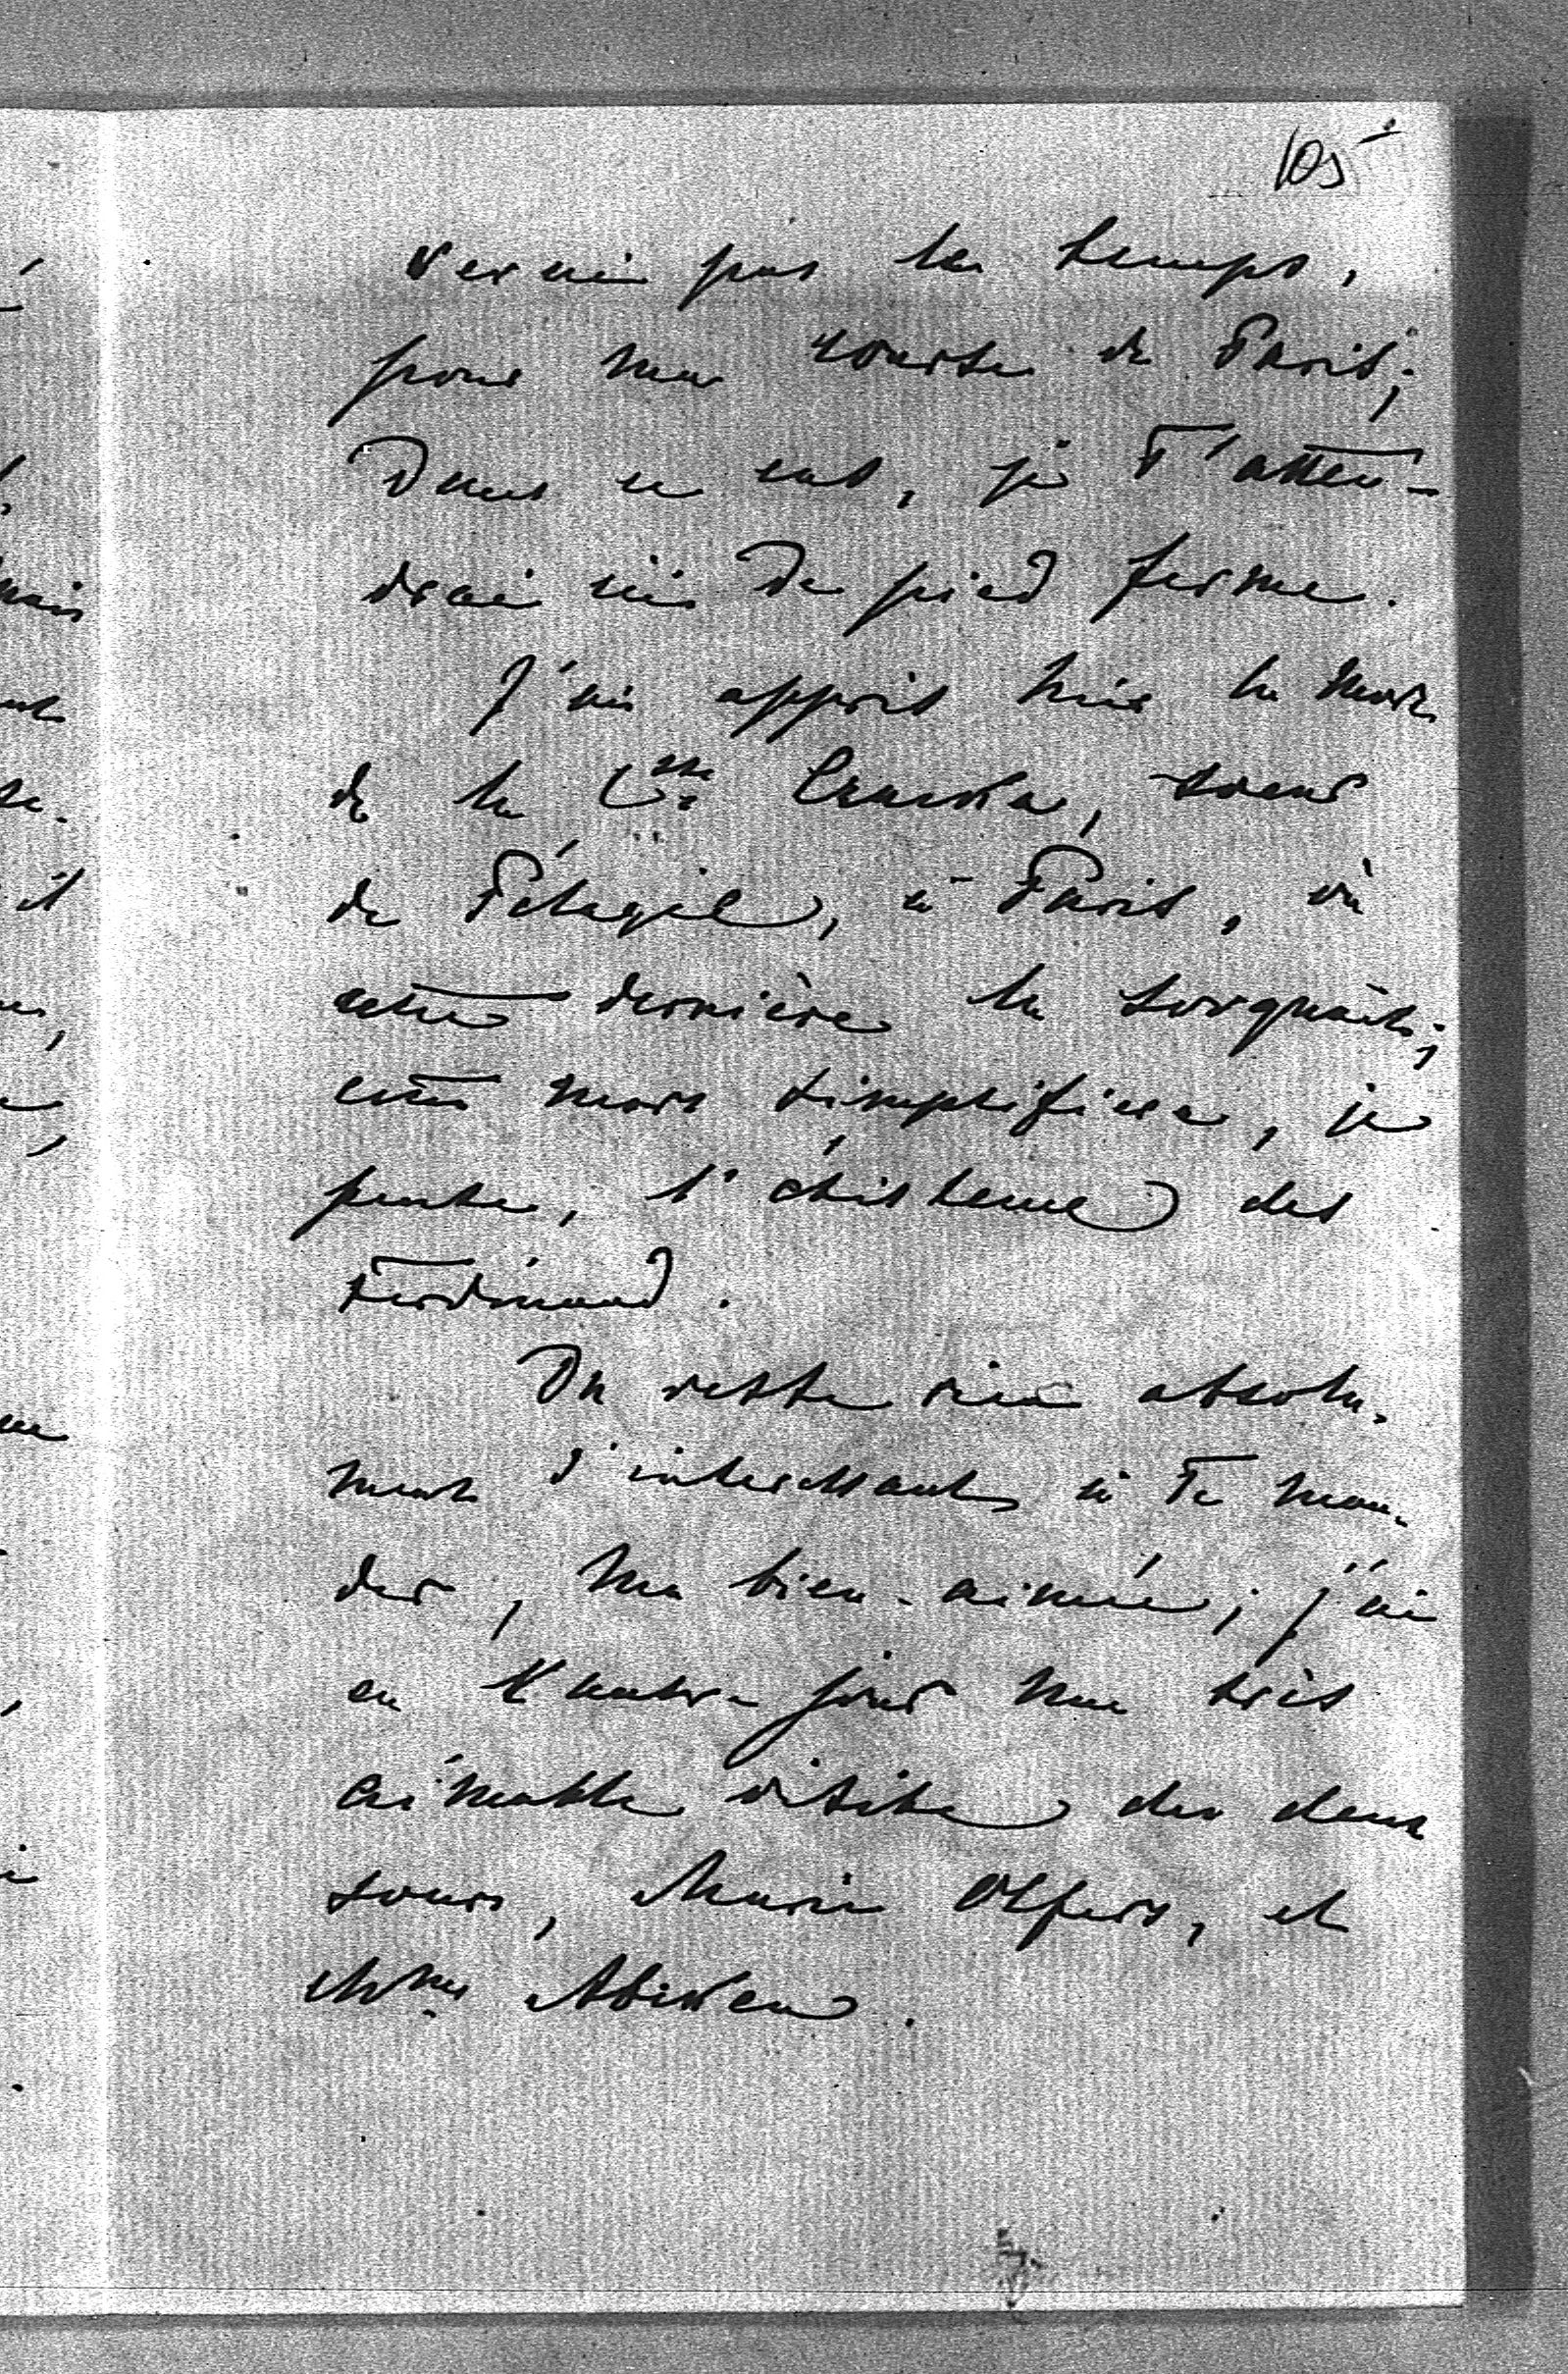 105
verai pas le temps,
pour ma course de Paris;
Dans ce cas, je T'atten-
drai ici de pied ferme.
J'ai appris hier la mort
de la Csse soeur
de Pélagie, à Paris, où
cette dernière la soignait;
cette mort simplifiera, je
pense, l'éxistence des
Ferdinand.
Du reste rien absolu-
ment d'interessant à Te man-
der, ma bien-aimée; j'ai
eu l'autre jour une très
aimable visite des deux
soeurs, Marie Olfers, et
Mme Abeken.